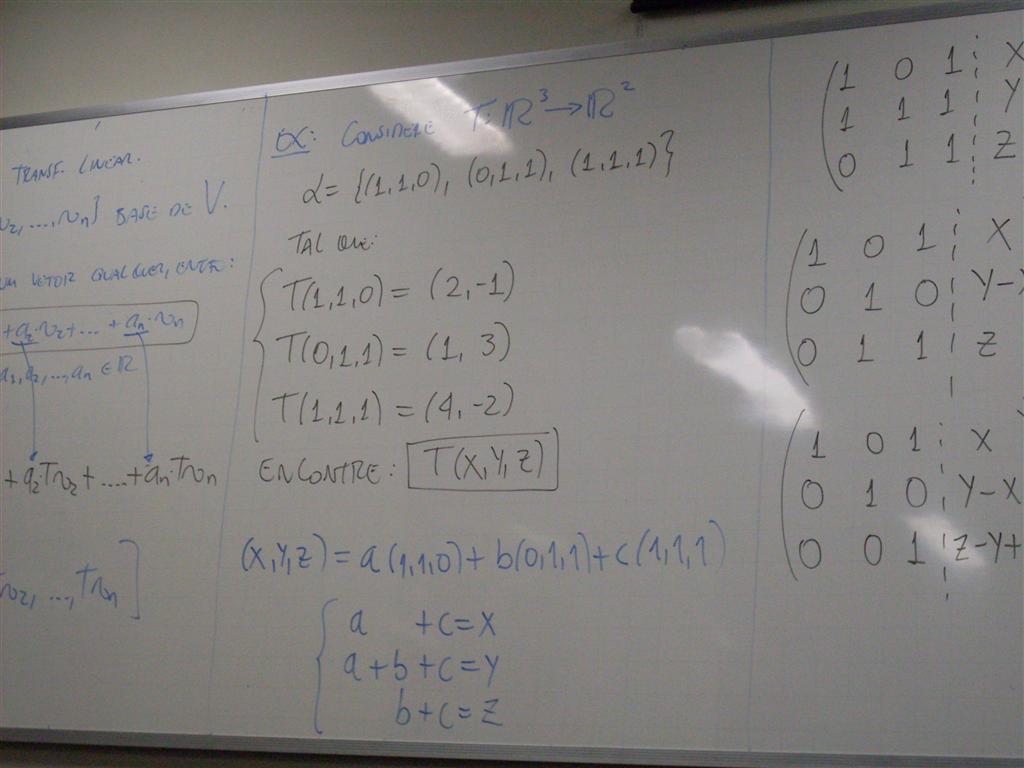 TRANSF. LINEAR.
v₂, ..., vₙ} BASE DE V.
UM VETOR QUALQUER, ENTÃO:
+a₂·v₂+...+aₙ·vₙ
a₁, a₂, ..., aₙ ∈ ℝ
+a₂·Tv₂+....+aₙ·Tvₙ
Tv₂, ..., Tvₙ]
EX: CONSIDERE T: ℝ³→ℝ²
α= {(1,1,0), (0,1,1), (1,1,1)}
TAL QUE:
T(1,1,0) = (2,-1)
T(0,1,1) = (1, 3)
T(1,1,1) = (4,-2)
ENCONTRE: T(X,Y,Z)
(X,Y,Z) = a(1,1,0)+b(0,1,1)+c(1,1,1)
a +c=X
a+b+c=Y
b+c=Z
1 0 1 X
1 1 1 Y
0 1 1 Z
1 0 1 X
0 1 0 Y-X
0 1 1 Z
1 0 1 X
0 1 0 Y-X
0 0 1 Z-Y+